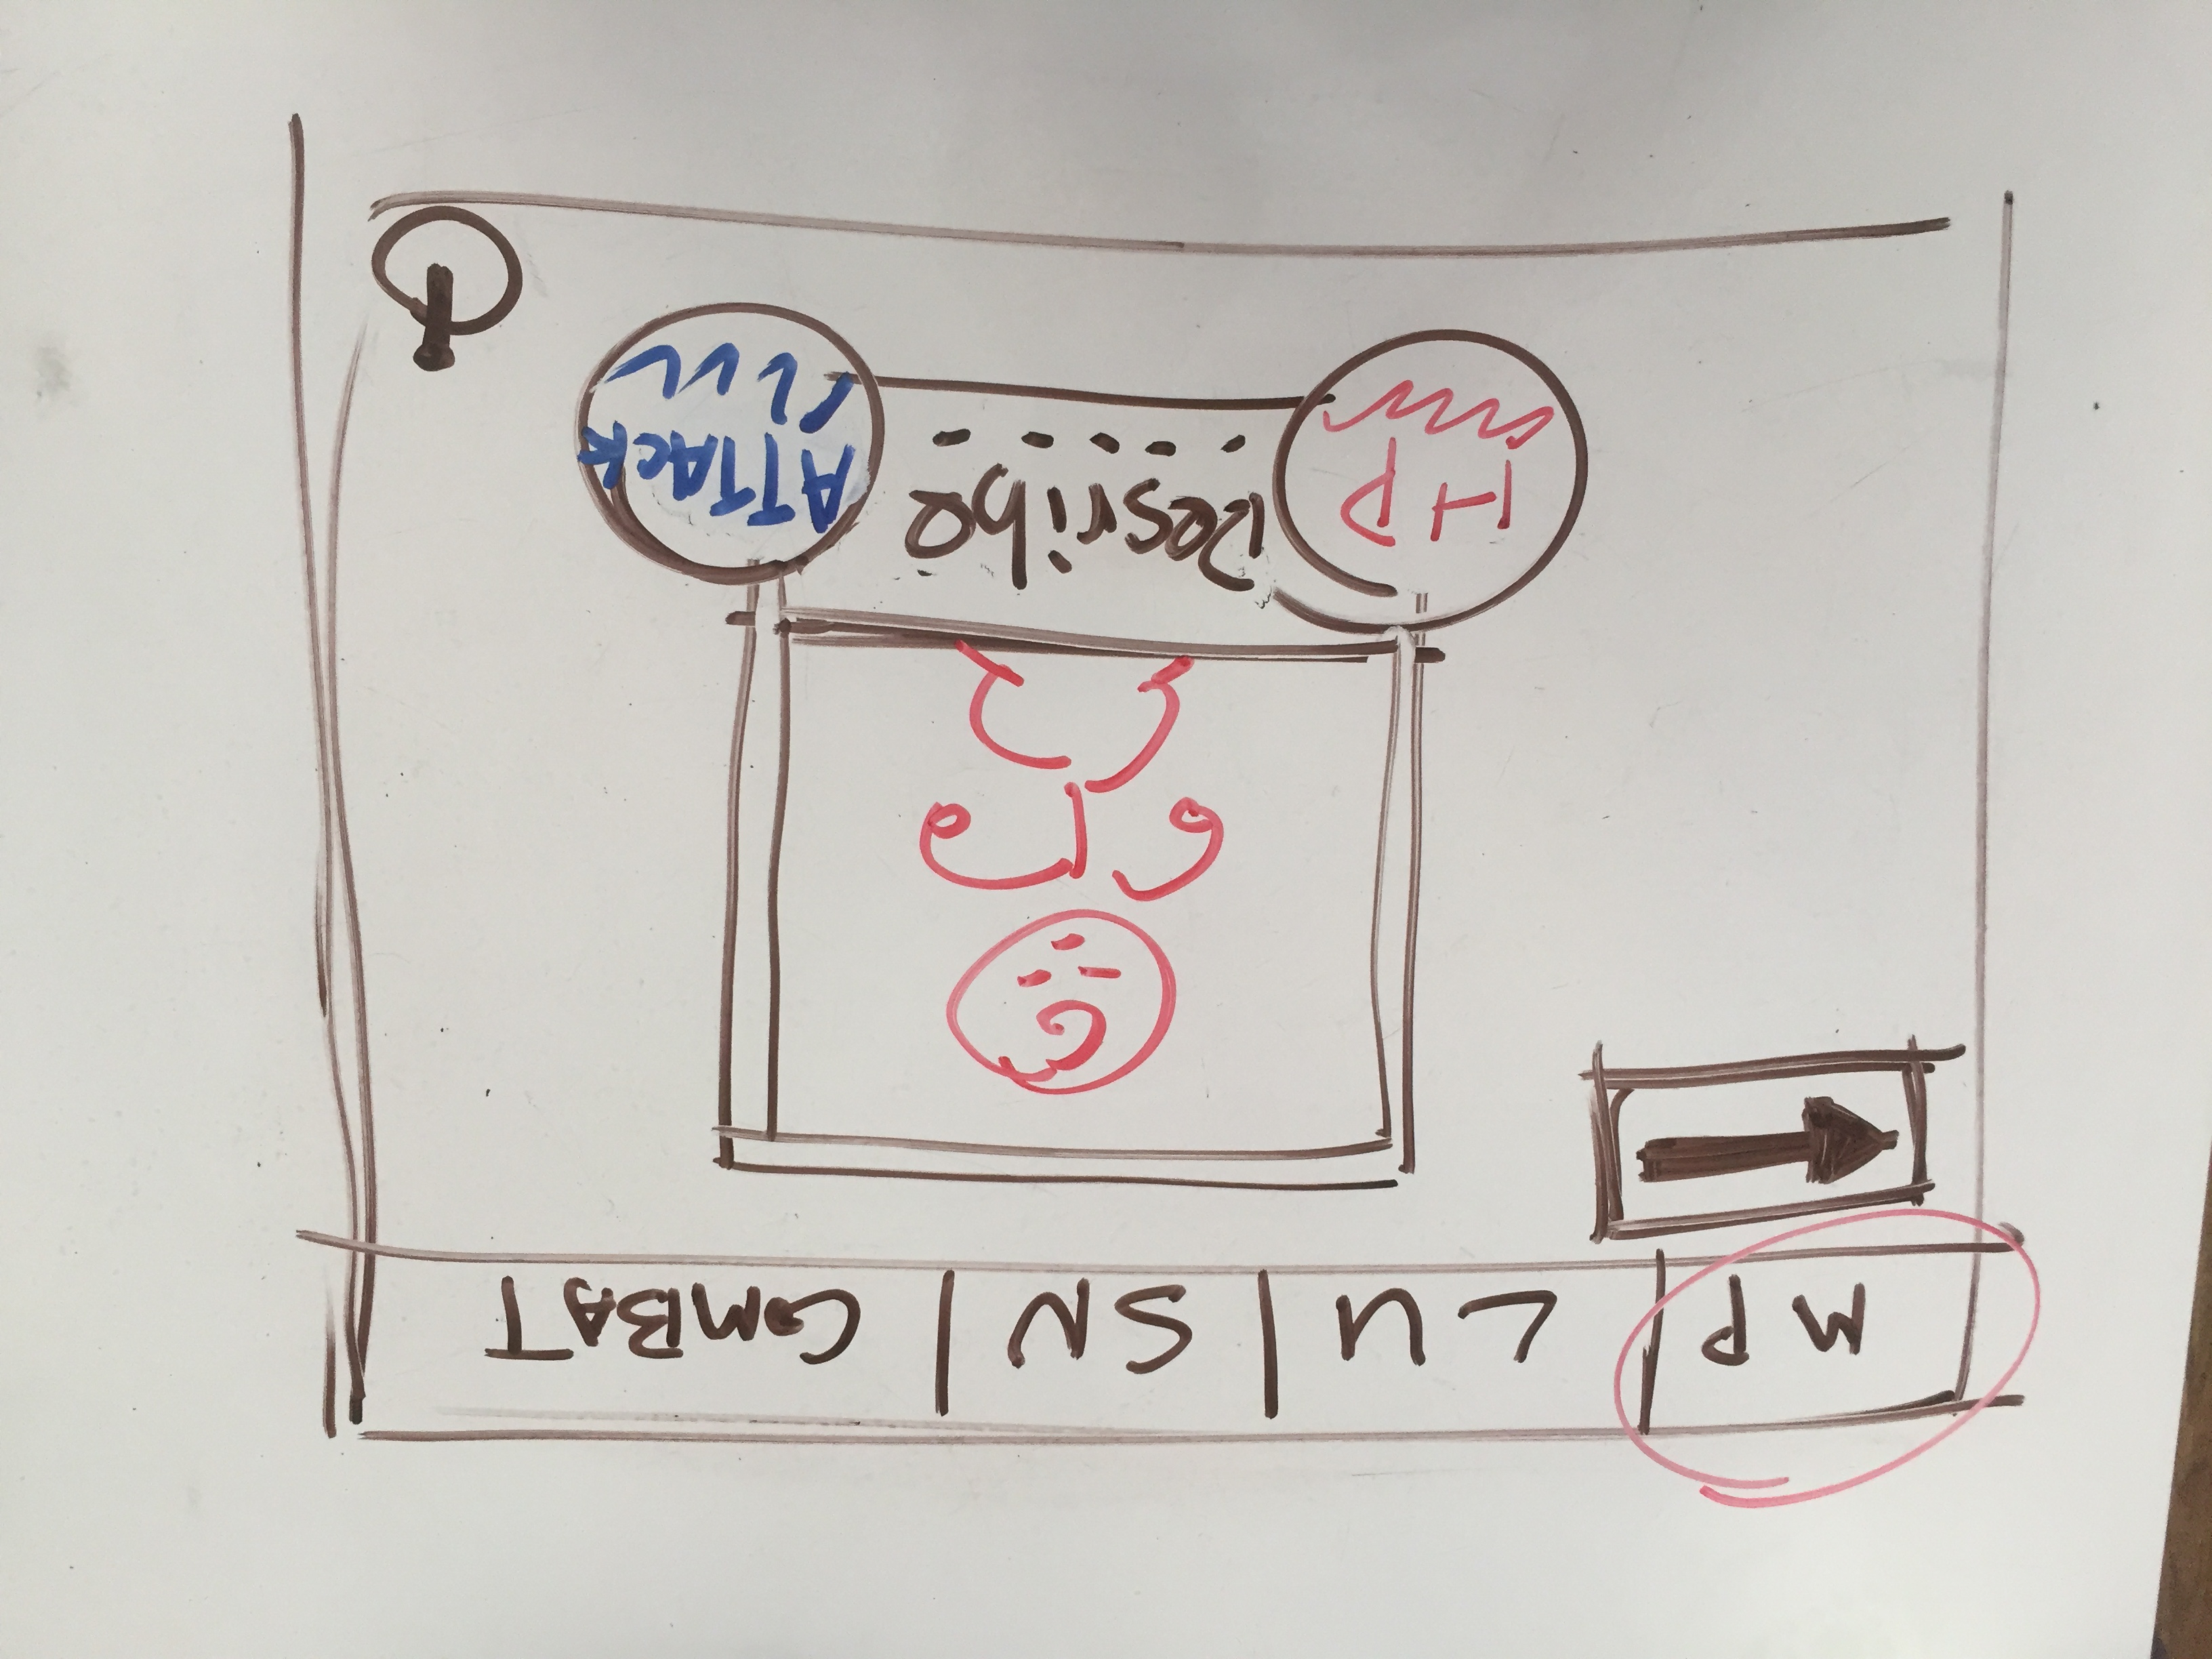 MP LU SN COMBAT
HP
Desribe
ATTAcK